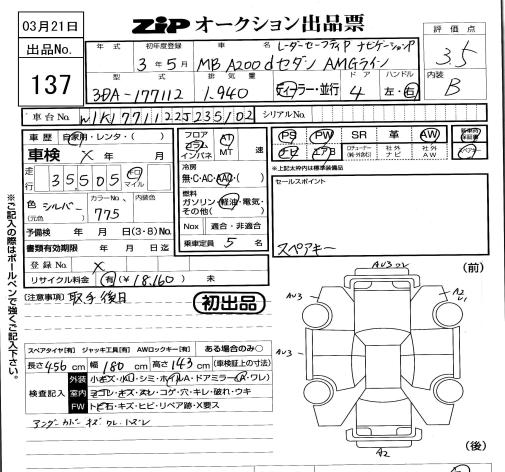 03月21日
ZIP オークション出品票
出品No.
137
評価点
3.5
内装
B
年式
初年度登録
車名
3年5月
レーダーセーフティP ナビゲーションP
MB A200d セダン AMGライン
型式
排気量
ドア
ハンドル
3DA-177112
1.940
ディーラー・並行
4
左・右
車台No.
W1K1771122J235102
シリアルNo.
車歴
自家用・レンタ・( )
車検
X 年 月
走行
35505
キロ
マイル
色
シルバー
(元色)
カラーNo.
775
内装色
予備検 年 月 日(3・8)No.
書類有効期限 年 月 日迄
登録No.
X
リサイクル料金
有(¥18,160) 未
フロア
コラム
インパネ
AT
MT
速
冷房
無・C・AC・AAC( )
燃料
ガソリン・軽油・電気・
その他( )
Nox
適合・非適合
乗車定員 5 名
PS
PW
SR
革
AW
社外
ナビ
社外
AW
スペアキー
※上記太枠内は標準装備品
セールスポイント
スペアキー
初出品
(注意事項)
取手後日
スペアタイヤ[有] ジャッキ工具[有] AWロックキー[有] ある場合のみ○
長さ456cm 幅180cm 高さ143cm (車検証上の寸法)
検査記入
外装
小キズ・小凹・シミ・ホイルA・ドアミラー(A・ワレ)
室内
ヨゴレ・キズ・スレ・コゲ・穴・キレ・破れ・ウキ
FW
トビ石・キズ・ヒビ・リペア跡・X要ス
アンダーカバー キズ ワレ ハズレ
※ご記入の際はボールペンで強くご記入下さい。
(前)
AU3
A2
U1
AU3
A2
(後)